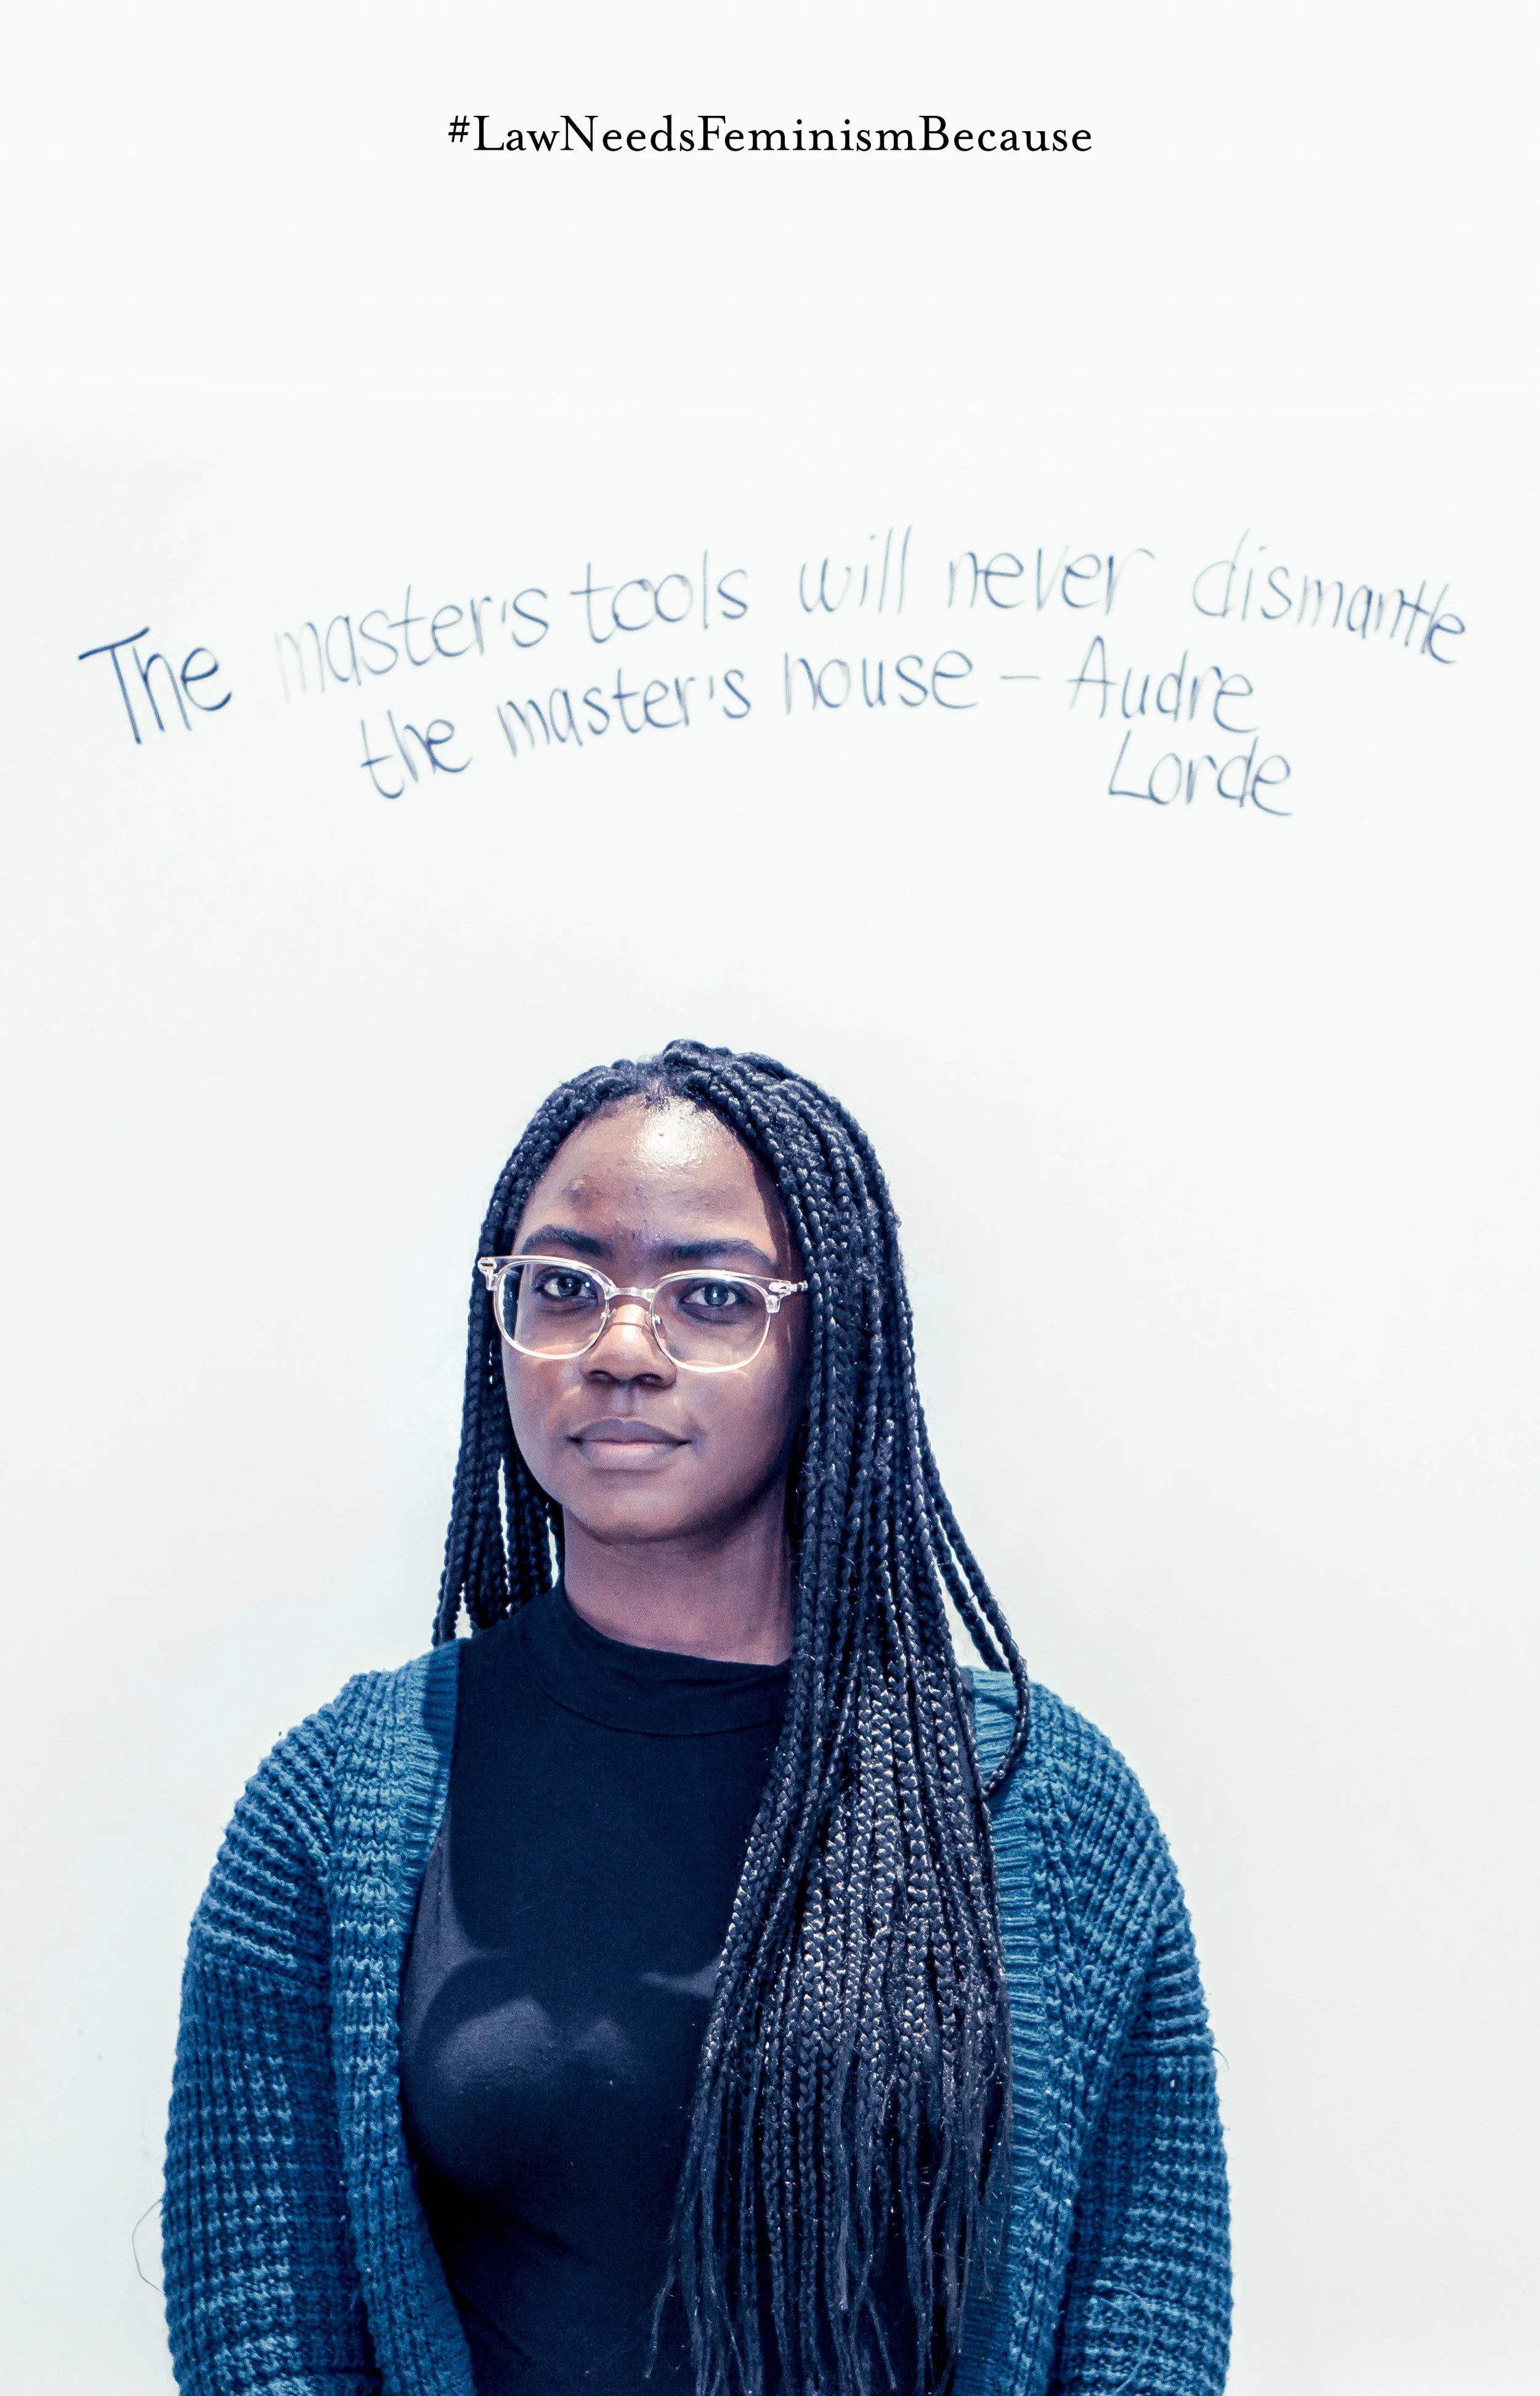 #LawNeedsFeminismBecause
The master's tools will never dismantle
the master's house – Audre
Lorde